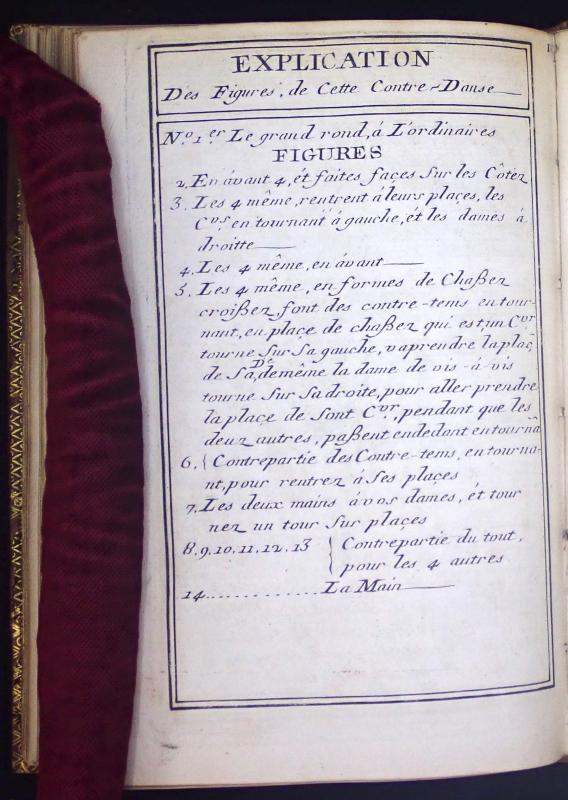 EXPLICATION
Des Figures, de Cette Contre-Danse
N.o 1.er Le grand rond, á L'ordinaires
FIGURES
2. En ávant 4, ét faites façes Sur les Côtez
3. Les 4 même, rentrent á leurs plaçes, les
C.vrs, en tournant á gauche, ét les dames á
droitte
4. Les 4 même, en ávant
5. Les 4 même, en formes de Chaßez
croißez, font des contre-tems en tour-
nant, en plaçe de chaßez qui est, un C.vr
tourne Sur Sa gauche, va prendre la plaç
de Sa D.e, de même la dame de vis-á-vis
tourne Sur Sa droite, pour aller prendre
la plaçe de Sont C.vr, pendant que les
deuz autres, paßent en dedant en tourna
6. { Contrepartie des Contre-tems, en tourna-
nt, pour rentrez á Ses plaçes
7. Les deux mains á vos dames, ét tour
nez un tour Sur plaçes
8. 9. 10. 11. 12. 13 { Contrepartie du tout,
pour les 4 autres
14............. La Main